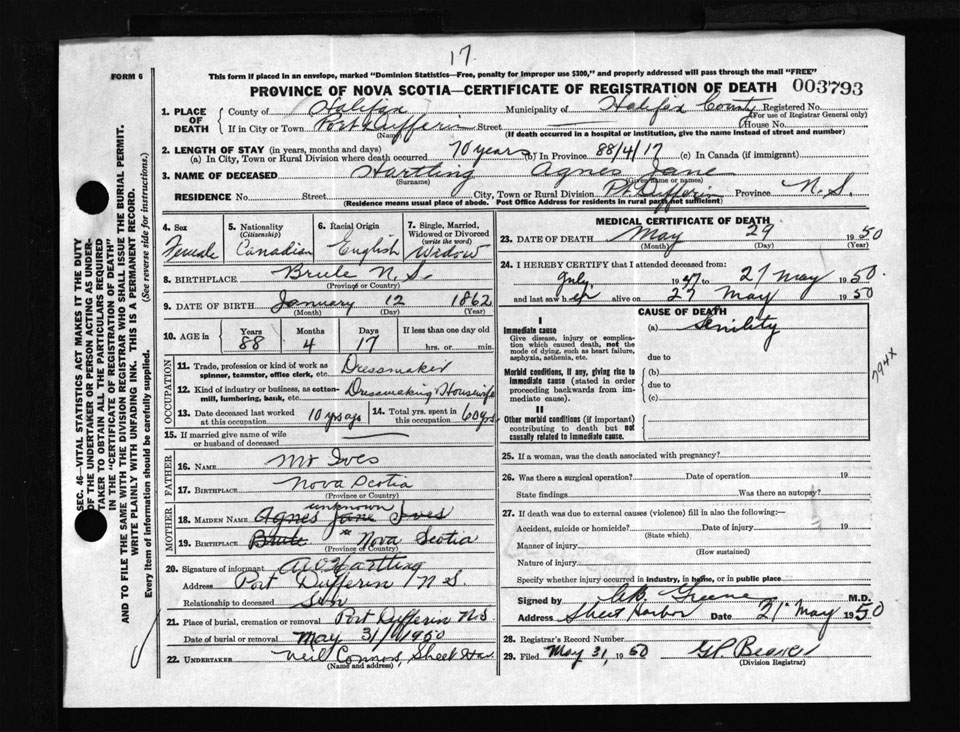 17.
FORM 6
This form if placed in an envelope, marked "Dominion Statistics—Free, penalty for improper use $300," and properly addressed will pass through the mail "FREE"
PROVINCE OF NOVA SCOTIA—CERTIFICATE OF REGISTRATION OF DEATH 003793
1. PLACE OF DEATH County of Halifax Municipality of Halifax County Registered No.
(For use of Registrar General only)
If in City or Town Port Dufferin Street House No.
(Name) (If death occurred in a hospital or institution, give the name instead of street and number)
2. LENGTH OF STAY (in years, months and days)
(a) In City, Town or Rural Division where death occurred 70 years (b) In Province 88/4/17 (c) In Canada (if immigrant)
3. NAME OF DECEASED Hartling Agnes Jane
(Surname) (Given name or names)
RESIDENCE No. Street City, Town or Rural Division Pt. Dufferin Province N. S.
(Residence means usual place of abode. Post Office Address for residents in rural parts not sufficient)
SEC. 46—VITAL STATISTICS ACT MAKES IT THE DUTY
OF THE UNDERTAKER OR PERSON ACTING AS UNDER-
TAKER TO OBTAIN ALL THE PARTICULARS REQUIRED
IN THE "CERTIFICATE OF REGISTRATION OF DEATH"
AND TO FILE THE SAME WITH THE DIVISION REGISTRAR WHO SHALL ISSUE THE BURIAL PERMIT.
WRITE PLAINLY WITH UNFADING INK. THIS IS A PERMANENT RECORD.
Every item of information should be carefully supplied. (See reverse side for instructions.)
4. Sex Female
5. Nationality (Citizenship) Canadian
6. Racial Origin English
7. Single, Married, Widowed or Divorced (write the word) Widow
8. BIRTHPLACE Brule N. S.
(Province or Country)
9. DATE OF BIRTH January 12 1862
(Month) (Day) (Year)
10. AGE in Years 88 Months 4 Days 17 If less than one day old
hrs. or min.
OCCUPATION
11. Trade, profession or kind of work as spinner, teamster, office clerk, etc. Dressmaker
12. Kind of industry or business, as cotton-mill, lumbering, bank, etc. Dressmaking & Housewife
13. Date deceased last worked at this occupation 10 yrs ago
14. Total yrs. spent in this occupation 60 yrs.
15. If married give name of wife or husband of deceased
FATHER
16. NAME Mr Ives
17. BIRTHPLACE Nova Scotia
(Province or Country)
MOTHER
unknown
18. MAIDEN NAME Agnes Jane Ives
19. BIRTHPLACE Brule Nova Scotia
(Province or Country)
20. Signature of informant Hartling
Address Port Dufferin N S.
Relationship to deceased Son
21. Place of burial, cremation or removal Port Dufferin NS
Date of burial or removal May 31/1950
22. UNDERTAKER Neil Connors, Sheet Har.
(Name and address)
MEDICAL CERTIFICATE OF DEATH
23. DATE OF DEATH May 29 1950
(Month) (Day) (Year)
24. I HEREBY CERTIFY that I attended deceased from:
July 1947 to 27 May 1950.
and last saw her alive on 27 May 1950
CAUSE OF DEATH
I
Immediate cause
Give disease, injury, or complication which caused death, not the mode of dying, such as heart failure, asphyxia, asthenia, etc.
(a) Senility
due to
Morbid conditions, if any, giving rise to immediate cause (stated in order proceeding backwards from immediate cause).
(b)
due to
(c)
II
Other morbid conditions (if important) contributing to death but not causally related to immediate cause.
794X
25. If a woman, was the death associated with pregnancy?
26. Was there a surgical operation? Date of operation 19
State findings Was there an autopsy?
27. If death was due to external causes (violence) fill in also the following:—
Accident, suicide or homicide? Date of injury 19
(State which)
Manner of injury
(How sustained)
Nature of injury
Specify whether injury occurred in industry, in home, or in public place
Signed by Greene M.D.
Address Sheet Harbor Date 21 May 1950
28. Registrar's Record Number
29. Filed May 31, 1950
(Division Registrar)